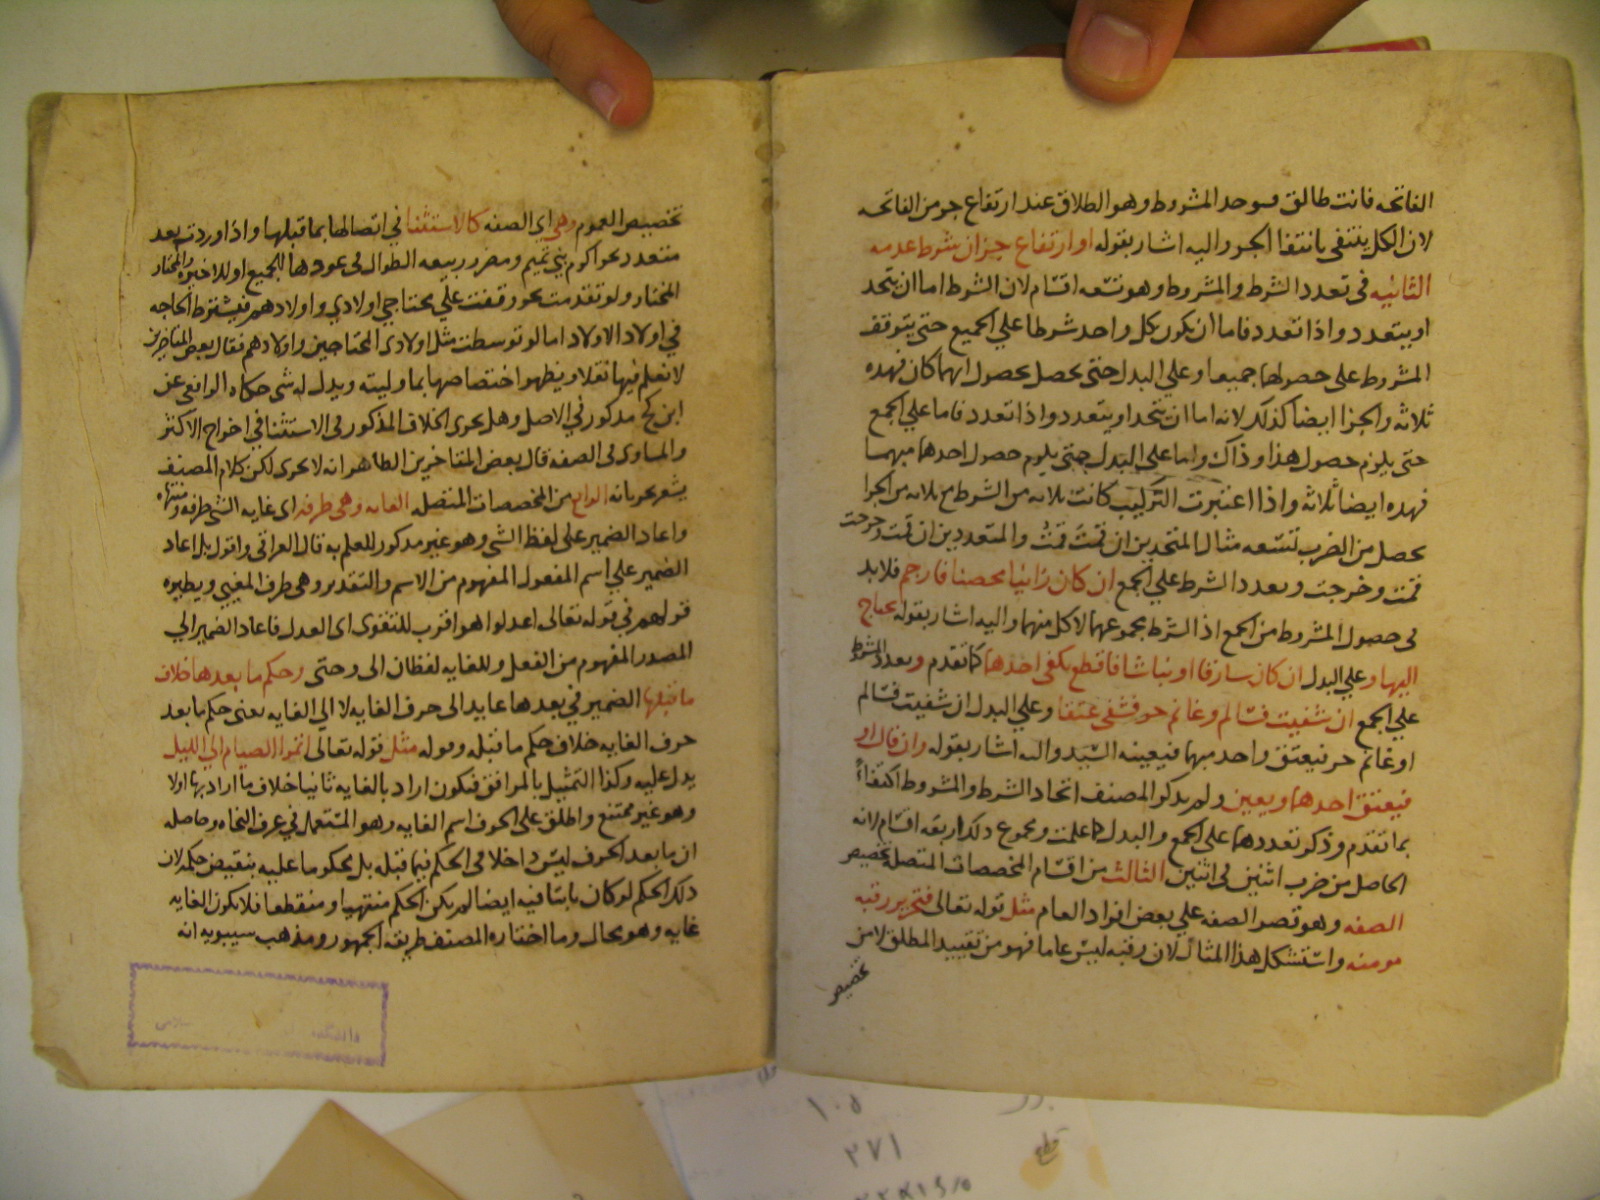 الفاتحه فانت طالق فيوجد المشروط وهو الطلاق عند ارتفاع جزمن الفاتحه
لان الكل ينتفي بانتفا الجز واليه اشار بقوله او ارتفاع جزان شرط عدمه
الثانيه في تعدد الشرط والمشروط وهو تسعه اقسام لان الشرط اما ان يتحد
او يتعدد واذا تعدد فاما ان يكون كل واحد شرطا علي الجميع حتي يتوقف
المشروط علي حصولها جميعا وعلي البدل حتي يحصل بحصول ايها كان فهذه
ثلاثه والجزا ايضا كذلك لانه اما ان يتحد او يتعدد واذا تعدد فاما علي الجمع
حتي يلزم حصول هذا وذاك واما علي البدل حتي يلزم حصول احدهما مبهما
فهذه ايضا ثلاثه واذا اعتبرت التركيب كانت ثلاثه من الشرط مع ثلاثه من الجزا
يحصل من الضرب تسعه مثال المتحدين ان قمت قمت والمتعددين ان قمت وخرجت
قمت وخرجت وتعدد الشرط علي الجمع ان كان زانيا محصنا فارجم فلابد
في حصول المشروط من الجمع اذ الشرط مجموعهما لا كل منهما واليه اشار بقوله يحتاج
اليها وعلي البدل ان كان سارقا او نباشا فاقطع يكفي احدها كما تقدم وتعدد المشروط
علي الجمع ان شفيت فسالم وغانم حر فشفي عتقا وعلي البدل ان شفيت فسالم
او غانم حر فيعتق واحد مبهما فيعينه السيد واليه اشار بقوله وان قال او
فيعتق احدها ويعين ولم يذكر المصنف اتحاد الشرط والمشروط اكتفاء
بما تقدم وذكر تعددهما علي الجمع والبدل كما علمت ومجموع ذلك اربعه اقسام لانه
الحاصل من ضرب اثنين في اثنين الثالث من اقسام المخصصات المتصله تخصيص
الصفه وهو قصر الصفه علي بعض افراد العام مثل قوله تعالى فتحرير رقبه
مومنه واستشكل هذا المثال لان رقبه ليس عاما فهو من تقييد المطلق لا من
تخصيص
تخصيص العموم وهي اي الصفه كالاستثنا في اتصالها بما قبلها واذا وردت بعد
متعدد نحو اكرم بني تميم ومضر وربيعه الطوال في عودها للجميع او للاخيره والمختار
المختار ولو تقدمت نحو وقفت علي محتاجي اولادي واولادهم فيشترط الحاجه
في اولاد الاولاد اما لو توسطت مثل اولادي المحتاجين واولادهم فقال بعض المتاخرين
لا نعلم فيها نقلا ويظهر اختصاصها بما وليته ويدل له شي حكاه الرافعي عن
ابن كج مذكور في الاصل وهل يجري الخلاف المذكور في الاستثنا في اخراج الاكثر
والمساوي في الصفه قال بعض المتاخرين الظاهر انه لا يجري لكن كلام المصنف
يشعر بجريانه الرابع من المخصصات المتصله الغايه وهي طرفه اي غايه الشي طرفه ومنتهاه
واعاد الضمير علي لفظ الشي وهو غير مذكور للعلم به قال العراقي واقول بل اعاد
الضمير علي اسم المفعول المفهوم من الاسم والتقدير وهي طرف المغيي ونظيره
قولهم في قوله تعالى اعدلوا هو اقرب للتقوى اي العدل فاعاد الضمير الي
المصدر المفهوم من الفعل وللغايه لفظان الى وحتى وحكم ما بعدها خلاف
ما قبلها الضمير في بعدها عايد الى حرف الغايه لا الي الغايه يعني حكم ما بعد
حرف الغايه خلاف حكم ما قبله وقوله مثل قوله تعالى اتموا الصيام الي الليل
يدل عليه وكذا التمثيل بالمرافق فيكون اراد بالغايه ثانيا خلاف ما اراد بها اولا
وهو غير ممتنع واطلق على الحرف اسم الغايه وهو المستعمل في عرف النحاه وحاصله
ان ما بعد الحرف ليس داخلا في الحكم فيما قبله بل يحكم عليه بنقيض حكمه لان
ذلك الحكم لو كان ثابتا فيه ايضا لم يكن الحكم منتهيا ومنقطعا فلا تكون الغايه
غايه وهو محال وما اختاره المصنف طريقه الجمهور ومذهب سيبويه انه
١٠٥
٢٧١